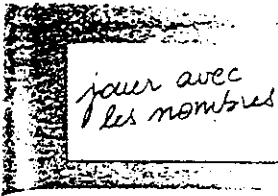 jouer avec
les nombres